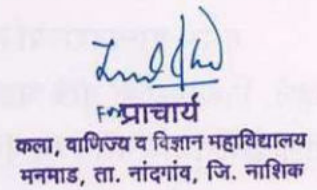 For प्राचार्य
कला, वाणिज्य व विज्ञान महाविद्यालय
मनमाड, ता. नांदगांव, जि. नाशिक